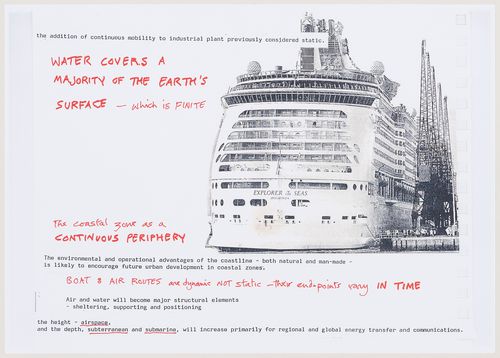 the addition of continuous mobility to industrial plant previously considered static.
WATER COVERS A
MAJORITY OF THE EARTH'S
SURFACE - which is FINITE
EXPLORER OF THE SEAS
The coastal zone as a
CONTINUOUS PERIPHERY
The environmental and operational advantages of the coastline - both natural and man-made -
is likely to encourage future urban development in coastal zones.
BOAT & AIR ROUTES are dynamic NOT static - their end-points vary IN TIME
Air and water will become major structural elements
- sheltering, supporting and positioning
the height - airspace,
and the depth, subterranean and submarine, will increase primarily for regional and global energy transfer and communications.